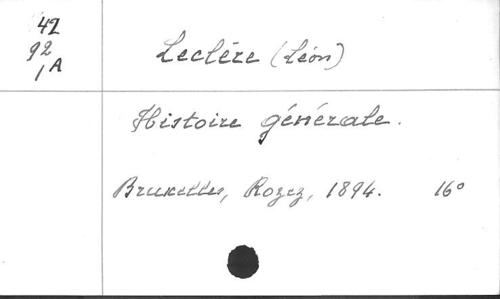 42
92
1A
Leclère (Léon)
Histoire générale.
Bruxelles, Rozez, 1894. 16°